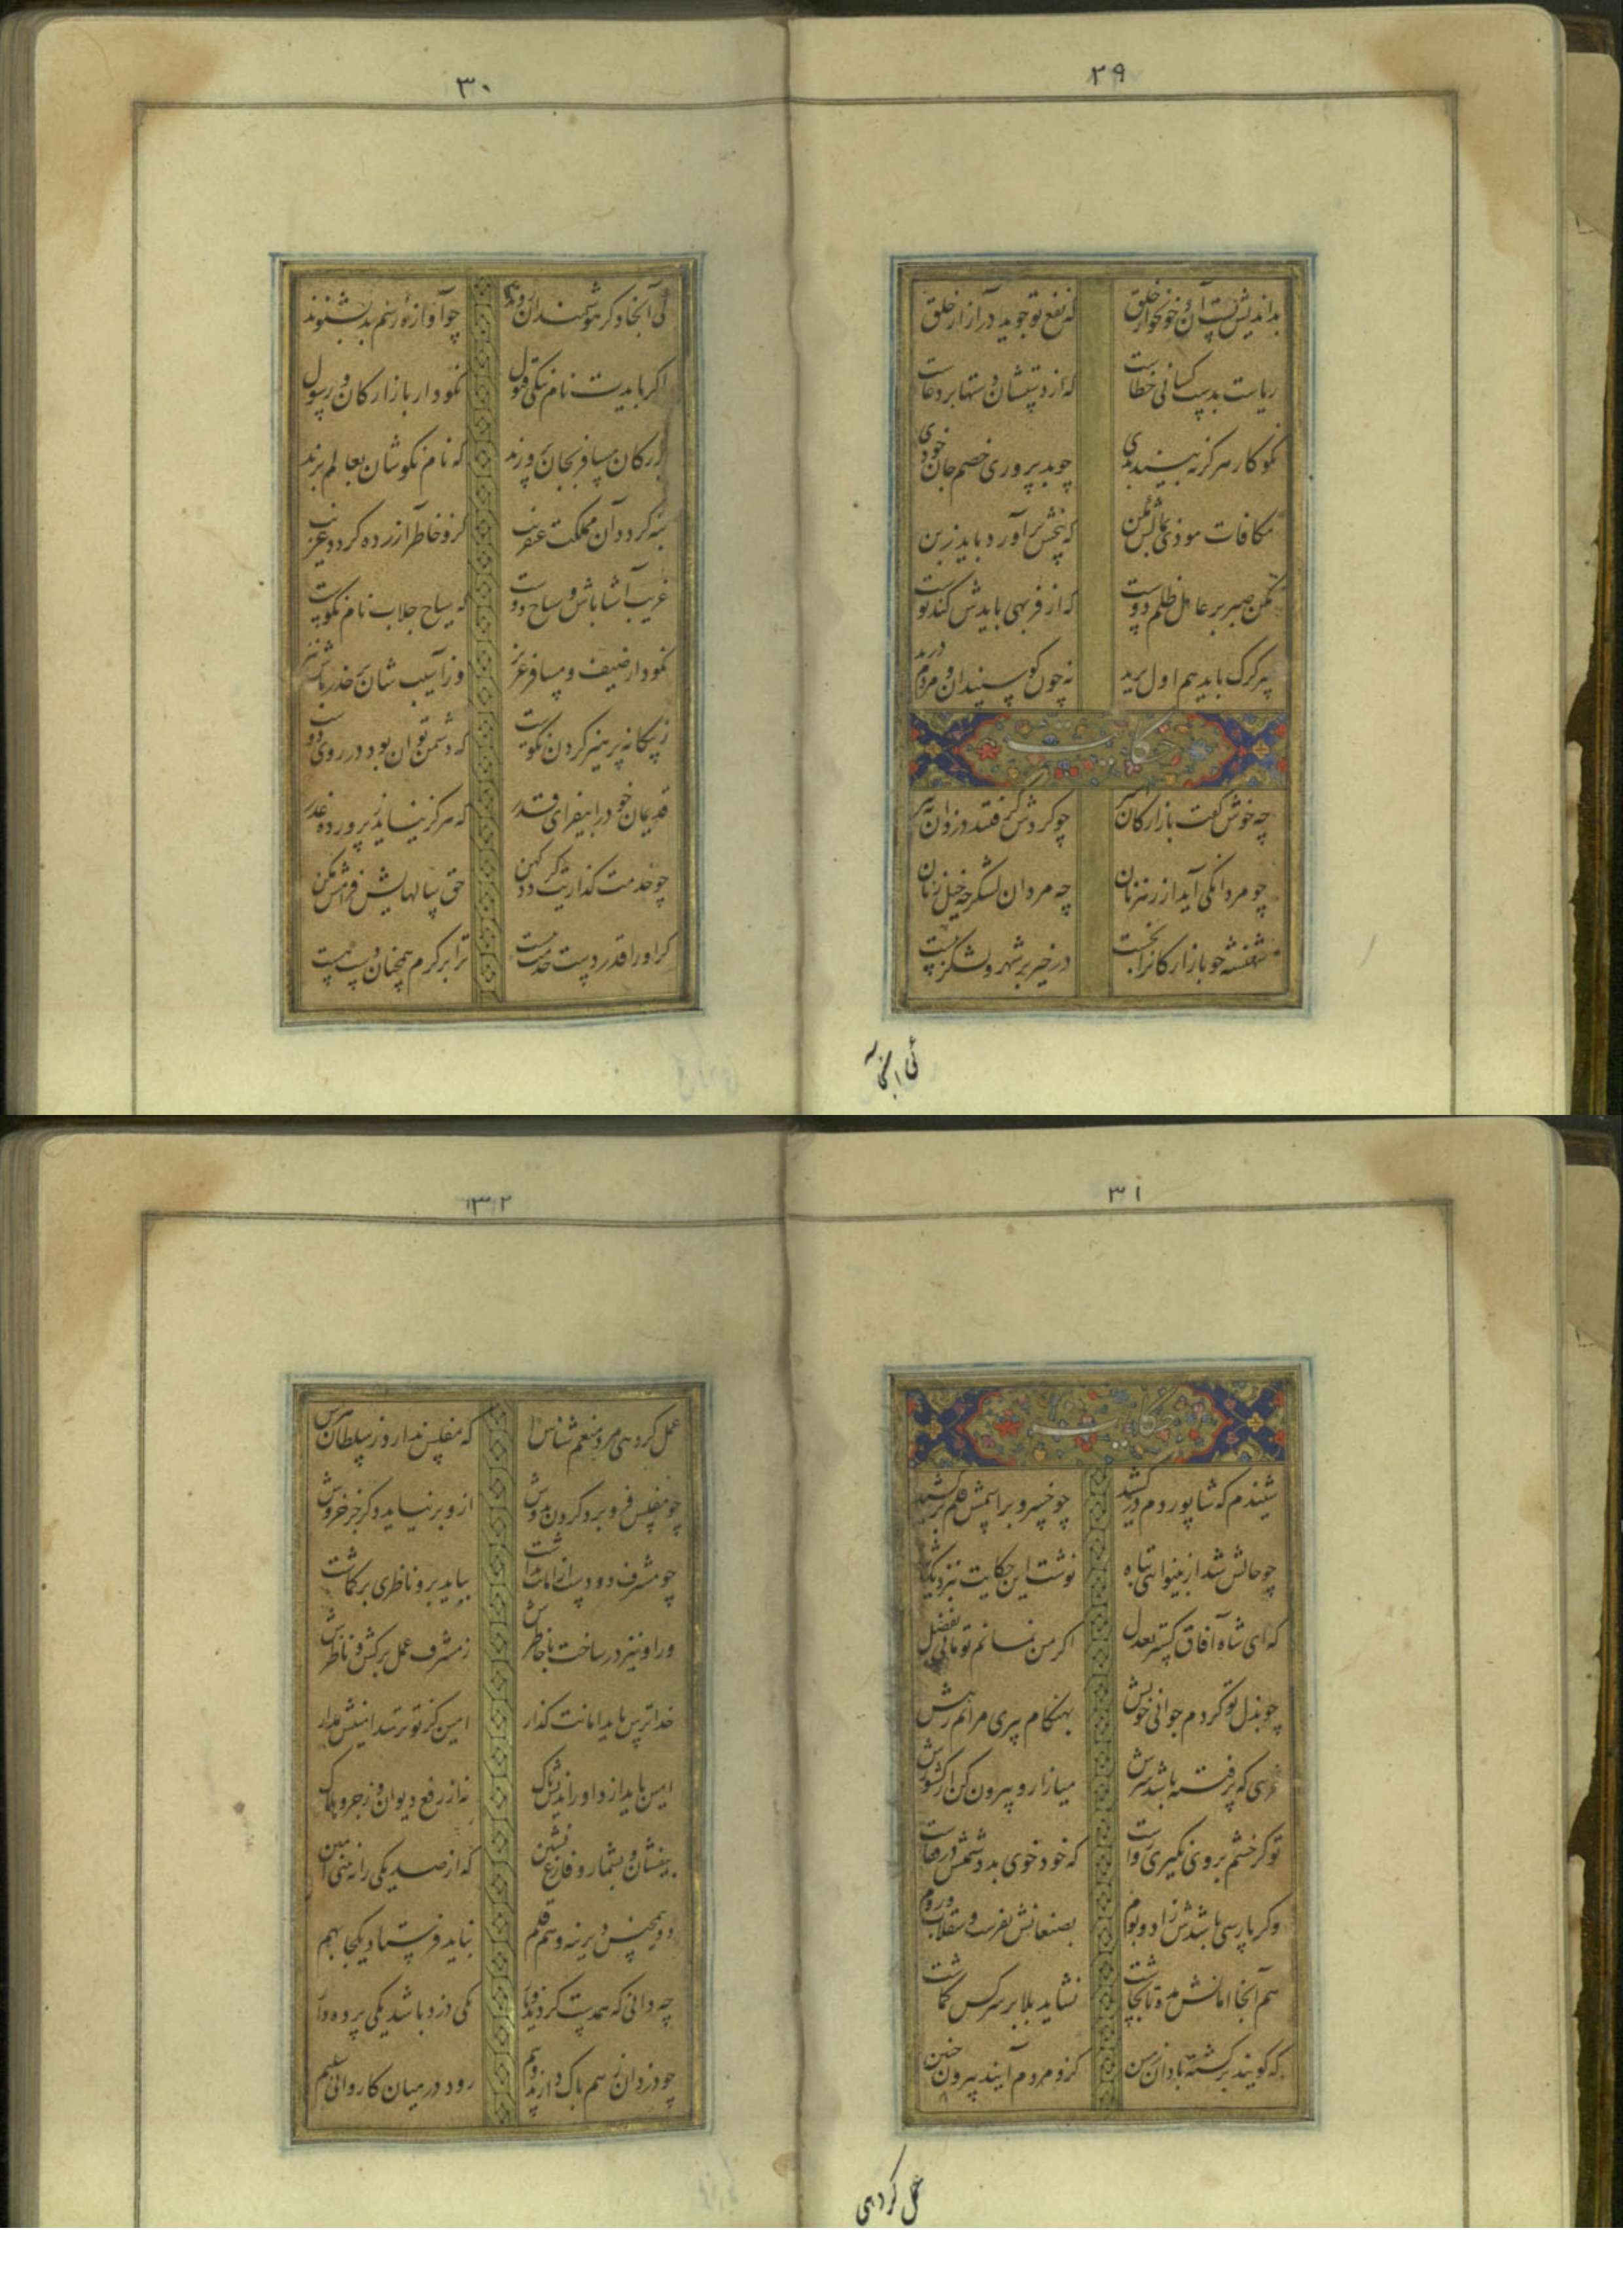 ۲۹
بداندیش تست آن و خونخوار خلق
که نفع تو جوید در آزار خلق
ریاست بدست کسانی خطاست
که از دستشان دستها بر دعاست
نکوکار هرگز نه بیند بدی
چو بد پروری خصم جان خودی
مکافات موذی بمالش مکن
که بیخش برآورد باید ز بن
مکن صبر بر عامل ظلم دوست
که از فربهی بایدش کند پوست
سر گرگ باید هم اول برید
نه چون گوسپندان مردم درید
حکایت
چه خوش گفت بازارگان اسیر
چو گردش گرفتند دزدان بتیر
چو مردانگی آید از رهزنان
چه مردان لشکر چه خیل زنان
شهنشه چو بازارگان را بخست
در خیر بر شهر و لشکر ببست
کی آنجا
۳۰
کی آنجا دگر هوشمندان روند
چو آوازهٔ رسم بد بشنوند
اگر بایدت نام نیکی قبول
نکو دار بازارگان و رسول
بزرگان مسافر بجان پرورند
که نام نکوشان بعالم برند
تبه گردد آن مملکت عنقریب
کزو خاطر آزرده گردد غریب
غریب آشنا باش و سیاح دوست
که سیاح جلاب نام نکوست
نکو دار ضیف و مسافر عزیز
وز آسیب شان بر حذر باش نیز
ز بیگانه پرهیز کردن نکوست
که دشمن توان بود در روی دوست
قدیمان خود را بیفزای قدر
که هرگز نیاید ز پرورده غدر
چو خدمت گذاریت گردد کهن
حق سالهایش فرامش مکن
گر او را قدر دست خدمت ببست
ترا بر کرم همچنان دست هست
۳۱
حکایت
شنیدم که شاپور دم درکشید
چو خسرو براسمش قلم درکشید
چو حالش شد از بینوایی تباه
نوشت این حکایت بنزدیک شاه
که ای شاه آفاق گستر بعدل
اگر من نمانم تو مانی بفضل
چو بذل تو کردم جوانی خویش
بهنگام پیری مرانم ز پیش
غریبی که پرفتنه باشد سرش
میازار و بیرون کن از کشورش
تو گر خشم بر وی نگیری رواست
که خود خوی بد دشمنش در قفاست
وگر پارسی باشدش زاد و بوم
بصنعانش مفرست و سقلاب و روم
هم آنجا امانش مده تا بچاشت
نشاید بلا بر سر کس گماشت
که گویند برگشته باد آن زمین
کزو مردم آیند بیرون چنین
عمل گر دهی
۳۲
عمل گر دهی مرد منعم شناس
که مفلس ندارد ز سلطان هراس
چو مفلس فرو برد گردن بدوش
ازو بر نیاید دگر جز خروش
چو مشرف دو دست از امانت بداشت
بباید برو ناظری برگماشت
ور او نیز در ساخت با خاطرش
ز مشرف عمل برکش و ناظرش
خداترس باید امانت گذار
امین کز تو ترسد امینش مدار
امین باید از داور اندیشناک
نه از رفع دیوان و زجر و هلاک
بیفشان و بشمار و فارغ نشین
که از صد یکی را نه بینی امین
دو همجنس دیرینه و هم قلم
نباید فرستاد یکجا بهم
چه دانی که همدست گردند و یار
یکی دزد باشد یکی پرده دار
چو دزدان ز هم باک دارند و بیم
رود در میان کاروانی سلیم